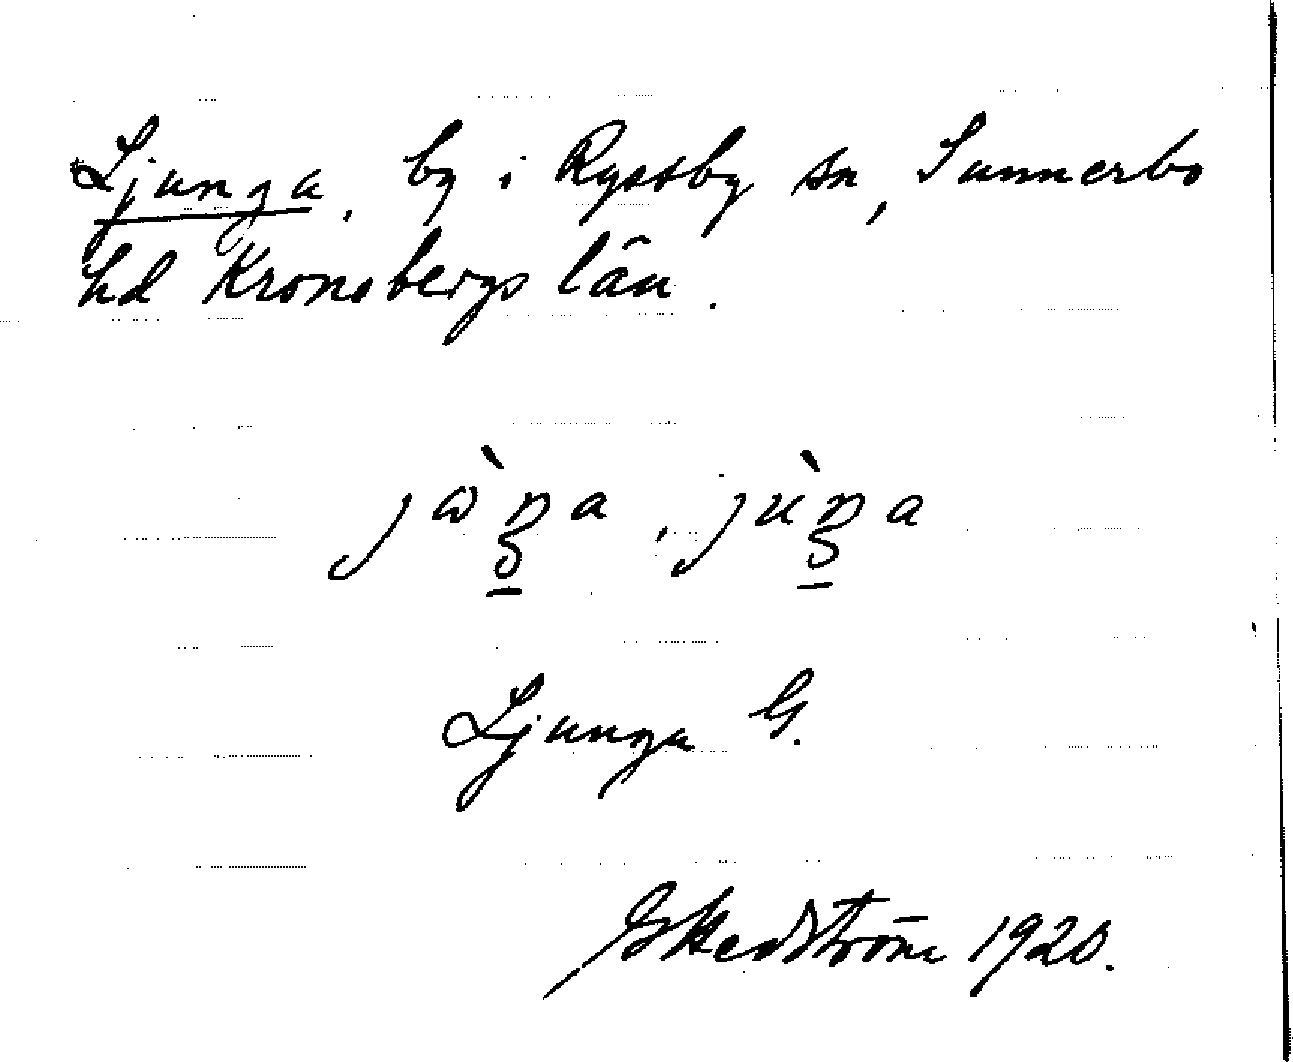 Ljunga, by i Ryssby sn, Sunnerbo
hd Kronobergs län.
Ljunga G.
G Hedström 1920.